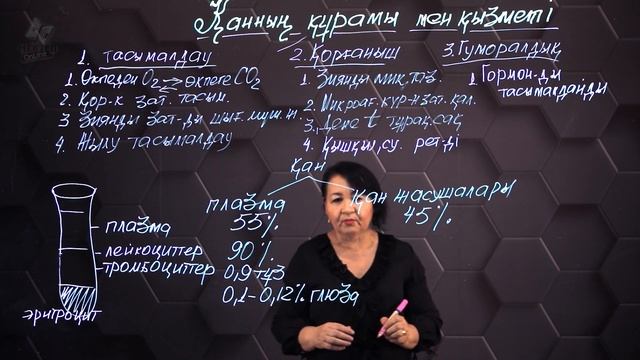 Қанның құрамы мен қызметі
1. тасымалдау
1. Өкпеден O₂ ⇄ өкпеге CO₂
2. Қор-к зат. тасым.
3 Зиянды зат-ды шығ. мүш. ж.
4. Жылу тасымалдау
2. Қорғаныш
1. Зиянды мик. т.з.
2. Микроағ. күр-н зат. қал.
3. Дене t тұрақ. сақ
4. Қышқыл, су. рет-ді
3. Гуморалдық
1. Гормон-ды
тасымалдайды
Қан
плазма
55%
90%
0,9 тұз
0,1-0,12% глюкоза
қан жасушалары
45%
плазма
лейкоциттер
тромбоциттер
эритроцит